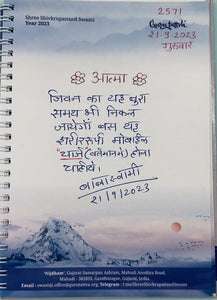 Shree Shivkrupanand Swami
Year 2023
2571
21-9-2023
गुरुवार
आत्मा
जिवन का यह बुरा
समय भी निकल
जायेगा बस यह
शरीररूपी मोबाईल
चार्ज (वर्तमानमे) होना
चाहीये.
बाबास्वामी
21/9/2023
"Nijdham", Gujarat Samarpan Ashram, Mahudi Amodiya Road,
Mahudi - 382855, Gandhinagar, Gujarat, INDIA
Email : swamiji.office@gurutattva.org, Telegram : t.me/ShreeShivkrupanandSwami